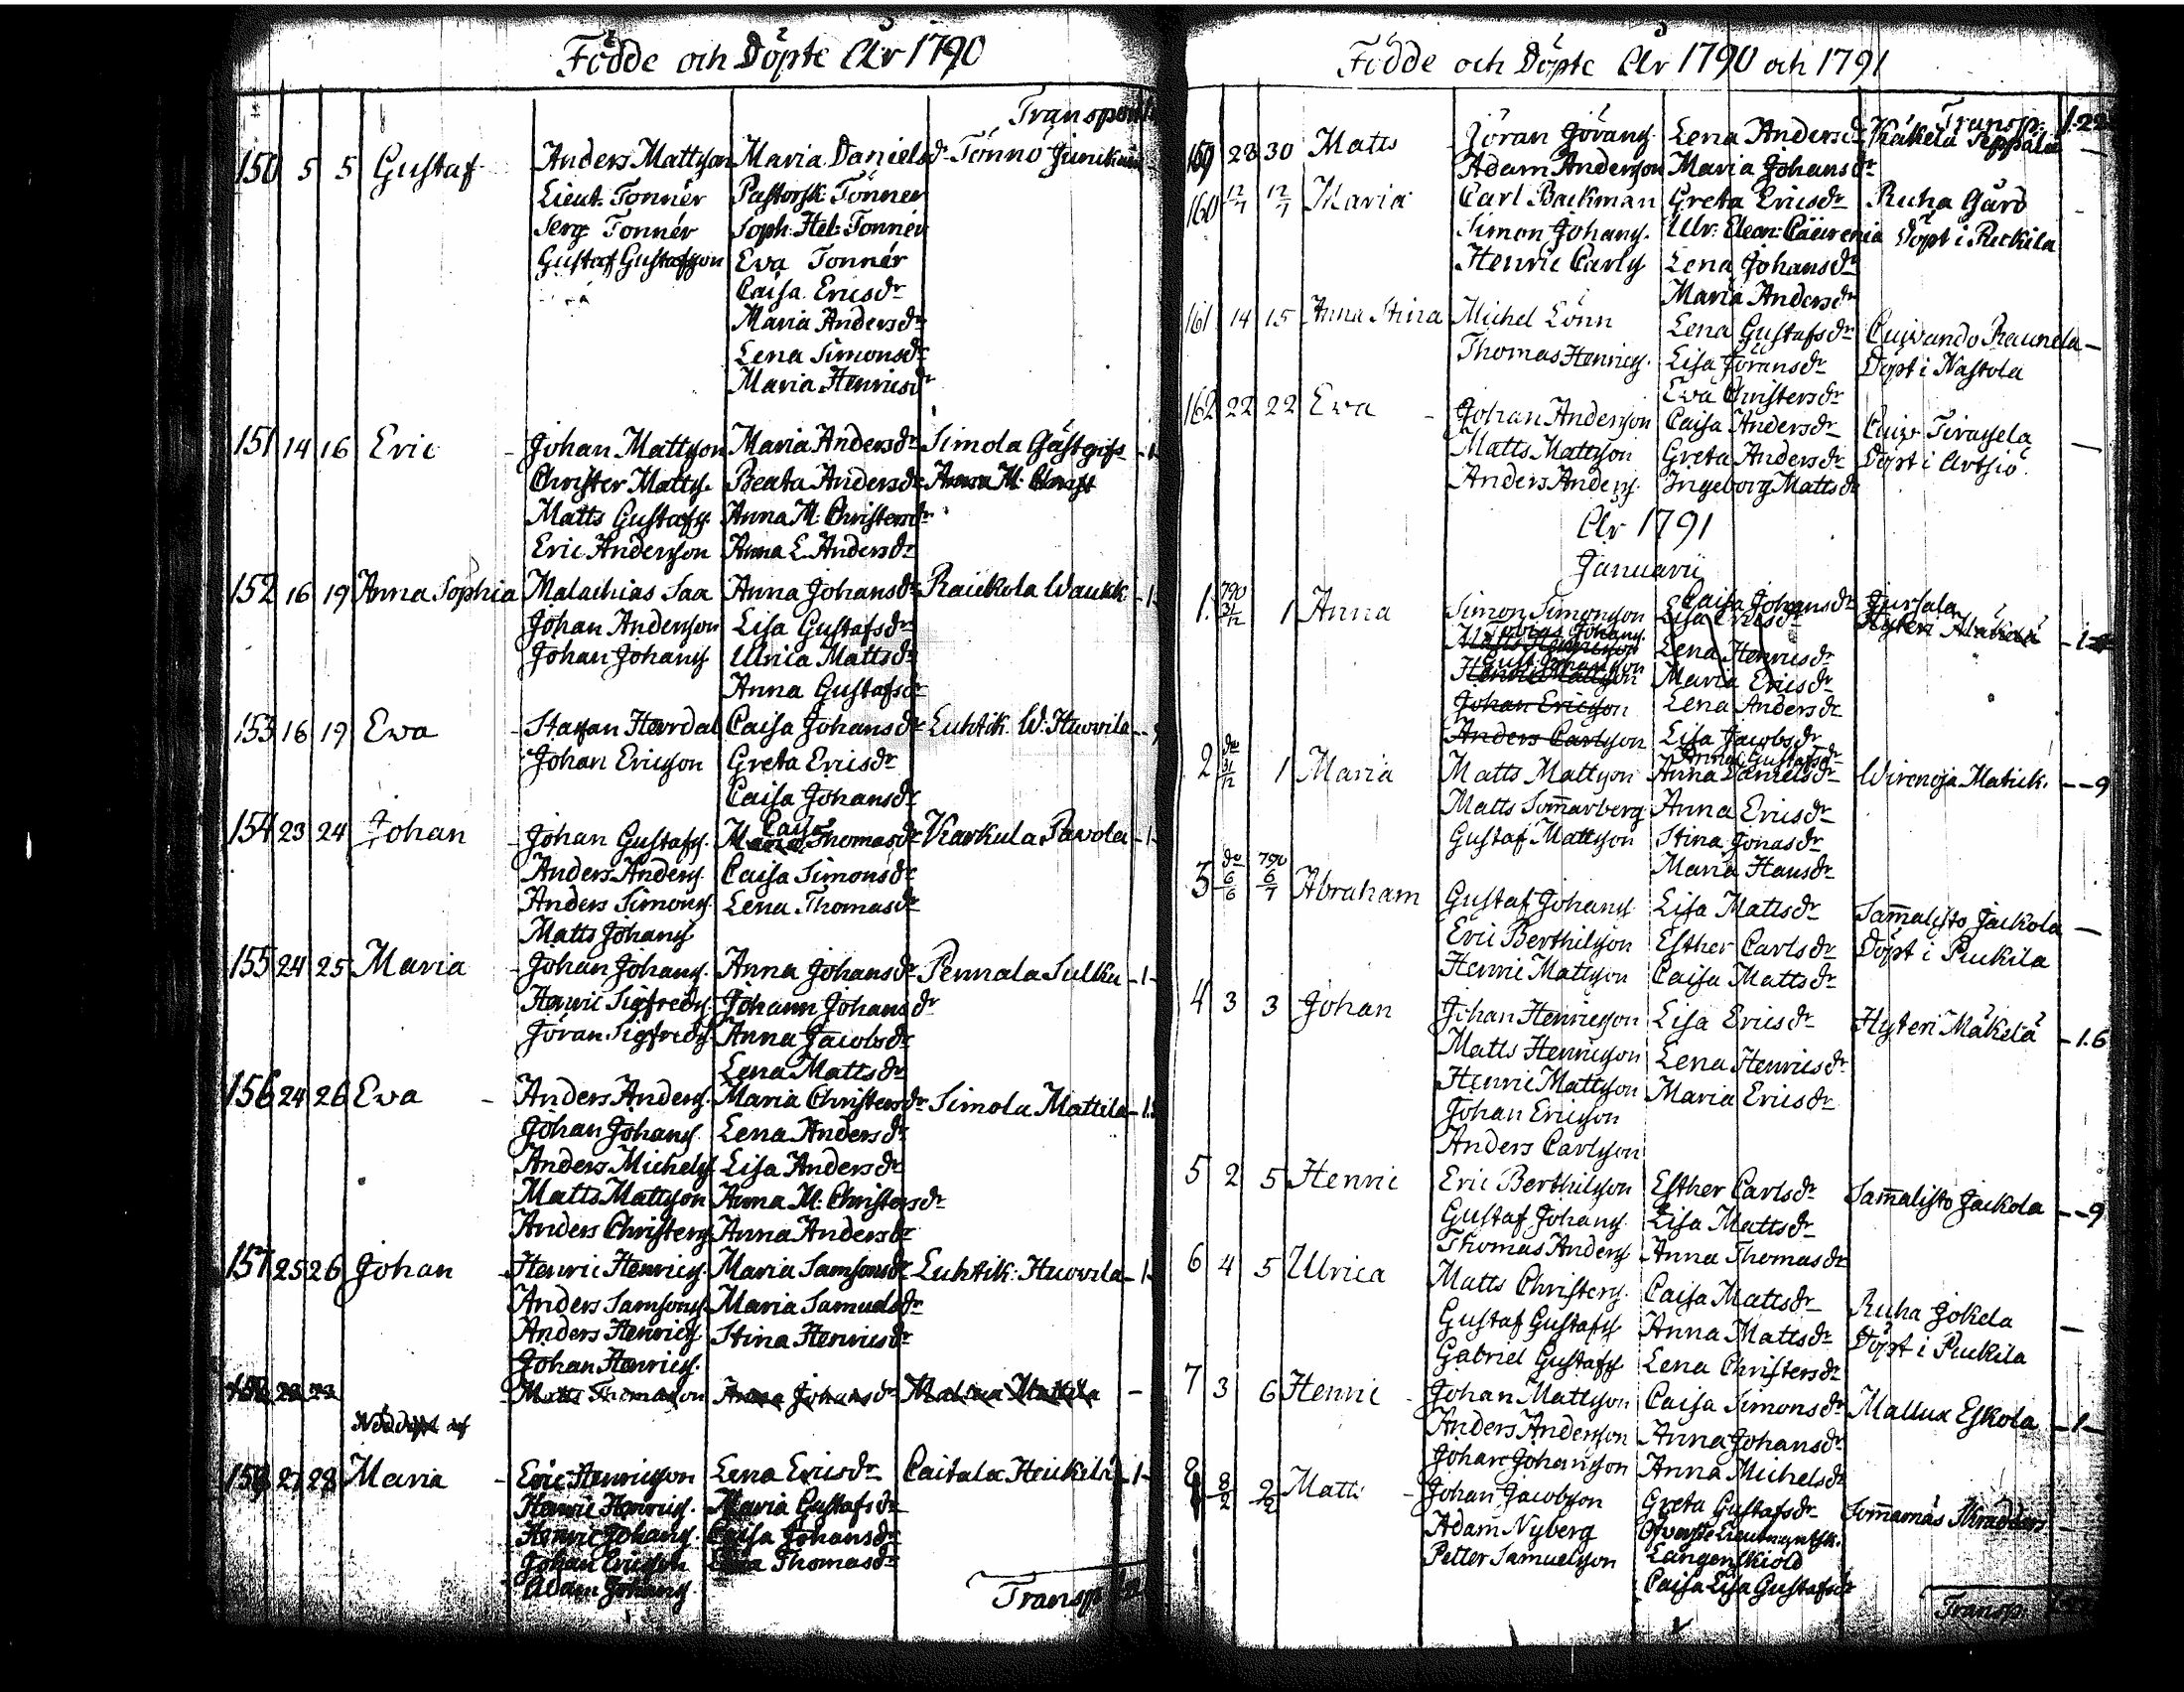 Födde och Döpte År 1790
Transport
150 5 5 Gustaf Anders Mattsson Maria Danielsdr Tönnö Junikkala
Lieut. Tonnér Pastorsk. Tonner
Serg Tonnér Soph. Hel. Tonnér
Gustaf Gustafsson Eva Tonnér
Caisa Ericsdr
Maria Andersdr
Lena Simonsdr
Maria Henricsdr
151 14 16 Eric - Johan Mattsson Maria Andersdr Simola Gästgifv -1-
Christer Matts. Beata Andersdr
Matts Gustafs. Anna M. Christersdr
Eric Andersson Anna L. Andersdr
152 16 19 Anna Sophia Malachias Saa Anna Johansdr Raickola Waukk -1-
Johan Andersson Lisa Gustafsdr
Johan Johans. Ulrica Mattsdr
Anna Gustafsdr
153 16 19 Ewa - Staffan Hoerdal Caisa Johansdr Luhtik. W. Huovila -- 9
Johan Ericsson Greta Ericsdr
Caisa Johansdr
154 23 24 Johan - Johan Gustafs. Caisa Thomasdr Karkula Pavola -1-
Anders Anders. Caisa Simonsdr
Anders Simons. Lena Thomasdr
Matts Johans.
155 24 25 Maria - Johan Johans. Anna Johansdr Pennala Sulku -1-
Henric Sigfreds. Johann Johansdr
Jöran Sigfreds. Anna Jacobsdr
Lena Mattsdr
156 24 26 Eva - Anders Anders. Maria Christersdr Simola Mattila -1.
Johan Johans. Lena Andersdr
Anders Michels. Lisa Andersdr
Matts Mattsson Anna M. Christersdr
Anders Christers. Anna Andersdr
157 25 26 Johan - Henric Henrics. Maria Samsonsdr Luhtik. Huovila -1-
Anders Samsons. Maria Samuelsdr
Anders Henrics. Stina Henricsdr
Johan Henrics.
Matts Thomasson Anna Johansdr Mattila -
Nöddöpt af
158 27 28 Maria - Eric Henricsson Lena Ericsdr Caitala Heickilä -1-
Henric Henrics. Maria Gustafsdr
Henric Johans. Caisa Johansdr
Johan Ericsson Thomasdr
Adam Johans.
Transp
Födde och Döpte År 1790 och 1791
Transp. 1.22
159 28 30 Matts Jöran Jörans. Lena Andersdr Käkelä Seppälä -
Adam Andersson Maria Johansdr
160 12/7 17/7 Maria Carl Backman Greta Ericsdr Ruha Gård -
Simon Johans. Ulr. Eleon. Cäürenia Döpt i Puckila
Henric Carls. Lena Johansdr
Maria Andersdr
161 14 15 Anna Stina Michel Lönn Lena Gustafsdr Cuivando Raunela -
Thomas Henrics. Lisa Jöransdr Döpt i Nastola
Eva Christersdr
162 22 22 Ewa - Johan Andersson Caisa Andersdr Cuiv. -
Matts Mattsson Greta Andersdr Döpt i Artsiö
Anders Anders. Ingeborg Mattsdr
År 1791
Januarii
1. 790 31/12 1 Anna Simon Simonsson Caisa Johansdr Lisa Ericsdr Jursala
Hyteri Mäkelä
Tobias Johans. Lena Henricsdr
Gust. Johansson
Henric Mattsson Maria Ericsdr
Johan Ericsson Lena Andersdr
Anders Carlsson Lisa Jacobsdr
Anna Gustafsdr
2 do 31/12 1 Maria Matts Mattsson Anna Danielsdr Wirenoja Matick. -- 9
Matts Sommarberg Anna Ericsdr
Gustaf Mattsson Stina Jonasdr
Maria Hansdr
3 do 6/6 790 6/7 Abraham Gustaf Johans. Lisa Mattsdr Sammalisto Jackola -
Eric Berthilsson Esther Carlsdr Döpt i Puckila
Henric Mattsson Caisa Mattsdr
4 3 3 Johan Johan Henricsson Lisa Ericsdr Hyteri Mäkelä -1.6
Matts Henricsson Lena Henricsdr
Henric Mattsson Maria Ericsdr
Johan Ericsson
Anders Carlsson
5 2 5 Henric Eric Berthilsson Esther Carlsdr Sammalisto Jackola -- 9
Gustaf Johans. Lisa Mattsdr
Thomas Anders. Anna Thomasdr
6 4 5 Ulrica Matts Christers. Caisa Mattsdr Ruha Jokela -
Gustaf Gustafs. Anna Mattsdr Döpt i Puckila
Gabriel Gustafs. Lena Christersdr
7 3 6 Henric - Johan Mattsson Caisa Simonsdr Mallux Eskola -1-
Anders Andersson Anna Johansdr
Johan Johansson Anna Michelsdr
8 8/2 2/2 Matts - Johan Jacobsson Greta Gustafsdr Sommarnäs Skräddars -
Adam Nyberg Öfverste Lieutnantsk.
Petter Samuelsson Langenskiöld
Caisa Lisa Gustafsdr
Transp.